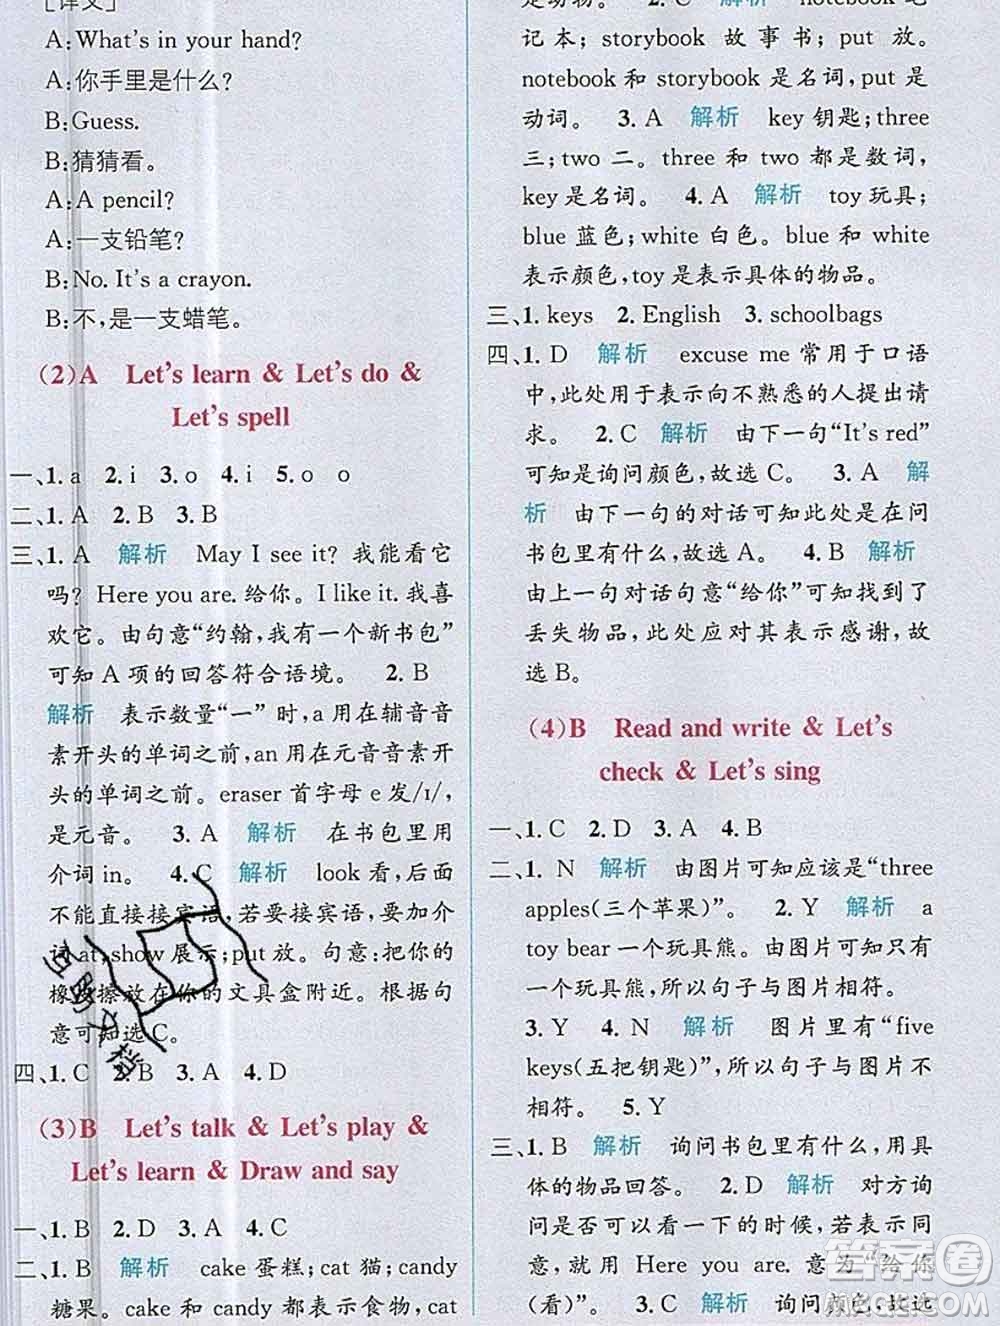 [译文]
A:What's in your hand?
A:你手里是什么?
B:Guess.
B:猜猜看。
A:A pencil?
A:一支铅笔?
B:No. It's a crayon.
B:不,是一支蜡笔。
(2)A Let's learn & Let's do &
Let's spell
一、1. a 2. i 3. o 4. i 5. o o
二、1. A 2. B 3. B
三、1. A 解析 May I see it? 我能看它
吗? Here you are. 给你。I like it. 我喜
欢它。由句意“约翰,我有一个新书包”
可知 A 项的回答符合语境。 2. B
解析 表示数量“一”时,a 用在辅音音
素开头的单词之前,an 用在元音音素开
头的单词之前。eraser 首字母 e 发/ɪ/,
是元音。 3. A 解析 在书包里用
介词 in。 4. C 解析 look 看,后面
不能直接接宾语,若要接宾语,要加介
词 at,show 展示;put 放。句意:把你的
橡皮擦放在你的文具盒附近。根据句
意可知选 C。
四、1. C 2. B 3. A 4. D
(3)B Let's talk & Let's play &
Let's learn & Draw and say
一、1. B 2. D 3. A 4. C
二、1. B 解析 cake 蛋糕;cat 猫;candy
糖果。cake 和 candy 都表示食物,cat
是动物。 2. C 解析 notebook 笔
记本;storybook 故事书;put 放。
notebook 和 storybook 是名词,put 是
动词。 3. A 解析 key 钥匙;three
三;two 二。three 和 two 都是数词,
key 是名词。 4. A 解析 toy 玩具;
blue 蓝色;white 白色。blue 和 white
表示颜色,toy 是表示具体的物品。
三、1. keys 2. English 3. schoolbags
四、1. D 解析 excuse me 常用于口语
中,此处用于表示向不熟悉的人提出请
求。 2. C 解析 由下一句“It's red”
可知是询问颜色,故选 C。 3. A 解
析 由下一句的对话可知此处是在问
书包里有什么,故选 A。 4. B 解析
由上一句对话句意“给你”可知找到了
丢失物品,此处应对其表示感谢,故
选 B。
(4)B Read and write & Let's
check & Let's sing
一、1. C 2. D 3. A 4. B
二、1. N 解析 由图片可知应该是“three
apples(三个苹果)”。 2. Y 解析 a
toy bear 一个玩具熊。由图片可知只有
一个玩具熊,所以句子与图片相符。
3. Y 4. N 解析 图片里有“five
keys(五把钥匙)”,所以句子与图片不
相符。 5. Y
三、1. B 解析 询问书包里有什么,用具
体的物品回答。 2. D 解析 对方询
问是否可以看一下的时候,若表示同
意,就用 Here you are. 意为“给你
(看)”。 3. C 解析 询问颜色,故选
互助文档
答案圈